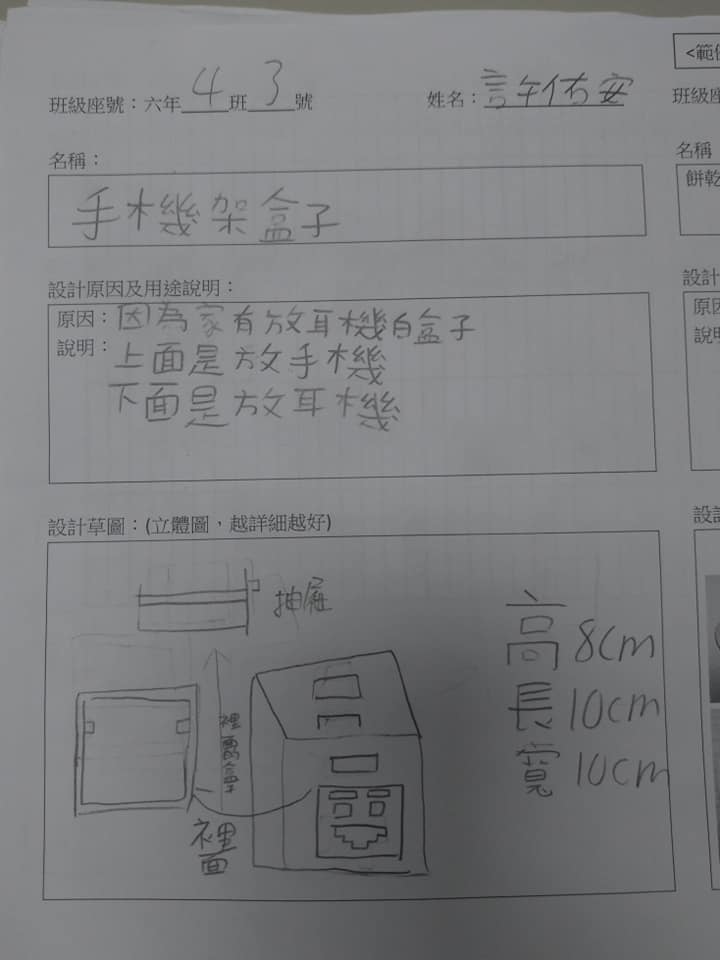 <範
班級座號：六年4班3號
姓名：許佑安
班級座
名稱：
名稱
手機架盒子
餅乾
設計原因及用途說明：
設計
原因：因為家有放耳機白盒子
原因
說明：上面是放手機
說明
下面是放耳機
設計草圖：(立體圖，越詳細越好)
設計
抽屜
高 8cm
長 10cm
寬 10cm
裡面